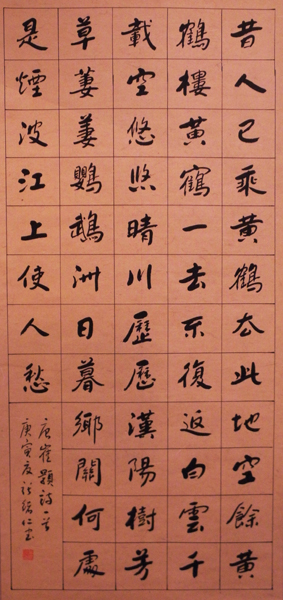 昔人已乘黄鶴去此地空餘黄
鶴樓黄鶴一去不復返白雲千
載空悠悠晴川歷歷漢陽樹芳
草萋萋鸚鵡洲日暮鄉關何處
是煙波江上使人愁
唐崔顥詩一首
庚寅夏仁書